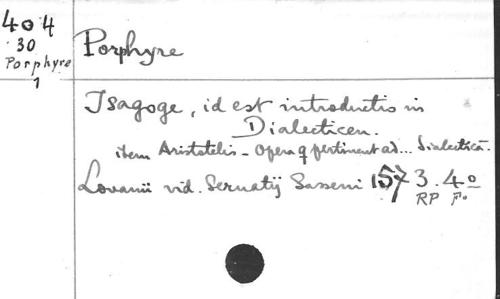 404
30
Porphyre
1
Porphyre
Isagoge, id est introductio in
Dialecticen.
item Aristotelis - Opera q pertinent ad... Dialecticā.
Lovanii vid. Servatij Sasseni 1573. 4º
RP Fº